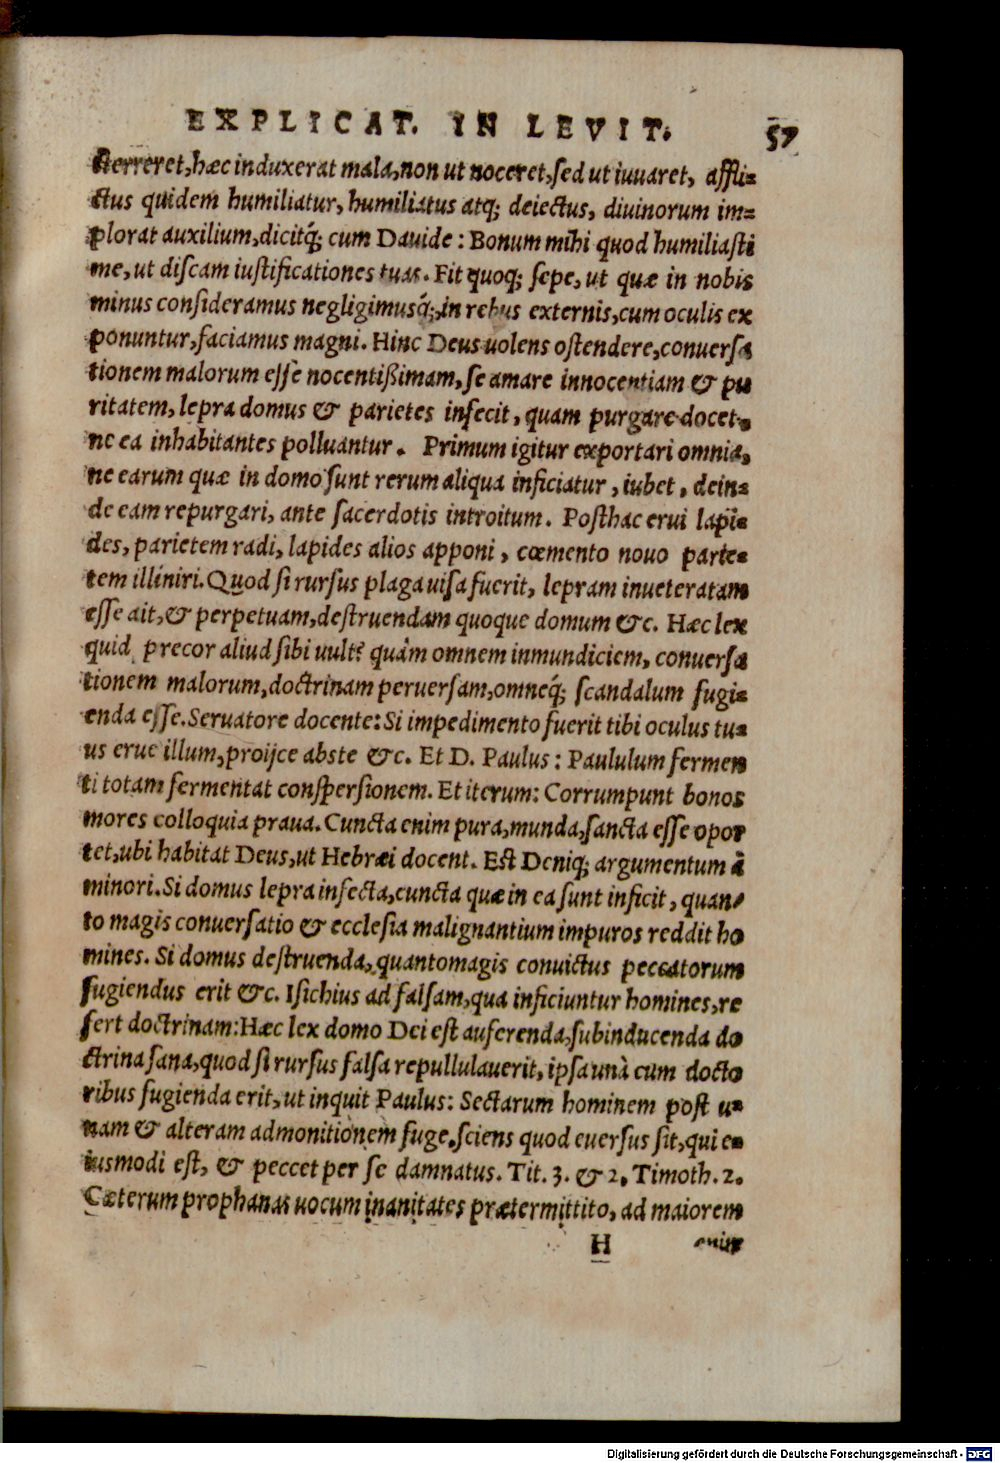 EXPLICAT. IN LEVIT. 57
sterreret, hæc induxerat mala, non ut noceret, sed ut iuuaret, affli=
ctus quidem humiliatur, humiliatus atq; deiectus, diuinorum im=
plorat auxilium, dicitq́; cum Dauide: Bonum mihi quod humiliasti
me, ut discam iustificationes tuas. Fit quoq; sepe, ut quæ in nobis
minus consideramus negligimusq́;, in rebus externis, cum oculis ex
ponuntur, faciamus magni. Hinc Deus uolens ostendere, conuersa
tionem malorum esse nocentißimam, se amare innocentiam & pu
ritatem, lepra domus & parietes infecit, quam purgare docet,
ne ea inhabitantes polluantur. Primum igitur exportari omnia,
ne earum quæ in domo sunt rerum aliqua inficiatur, iubet, dein=
de eam repurgari, ante sacerdotis introitum. Posthac erui lapi=
des, parietem radi, lapides alios apponi, cœmento nouo parie=
tem illiniri. Quod si rursus plaga uisa fuerit, lepram inueteratam
esse ait, & perpetuam, destruendam quoque domum &c. Hæc lex
quid precor aliud sibi uult? quàm omnem inmundiciem, conuersa
tionem malorum, doctrinam peruersam, omneq́; scandalum fugi=
enda esse. Seruatore docente: Si impedimento fuerit tibi oculus tu=
us erue illum, proijce abste &c. Et D. Paulus: Paululum fermen
ti totam fermentat conspersionem. Et iterum: Corrumpunt bonos
mores colloquia praua. Cuncta enim pura, munda, sancta esse opor
tet, ubi habitat Deus, ut Hebræi docent. Est Deniq; argumentum à
minori. Si domus lepra infecta, cuncta quæ in ea sunt inficit, quan=
to magis conuersatio & ecclesia malignantium impuros reddit ho
mines. Si domus destruenda, quantomagis conuictus peccatorum
fugiendus erit &c. Isichius ad falsam, qua inficiuntur homines, re
fert doctrinam: Hæc lex domo Dei est auferenda, subinducenda do
ctrina sana, quod si rursus falsa repullulauerit, ipsa unà cum docto
ribus fugienda erit, ut inquit Paulus: Sectarum hominem post u=
nam & alteram admonitionem fuge, sciens quod euersus sit, qui e=
iusmodi est, & peccet per se damnatus. Tit. 3. & 2. Timoth. 2.
Cæterum prophanas uocum inanitates prætermittito, ad maiorem
H enim
Digitalisierung gefördert durch die Deutsche Forschungsgemeinschaft - DFG